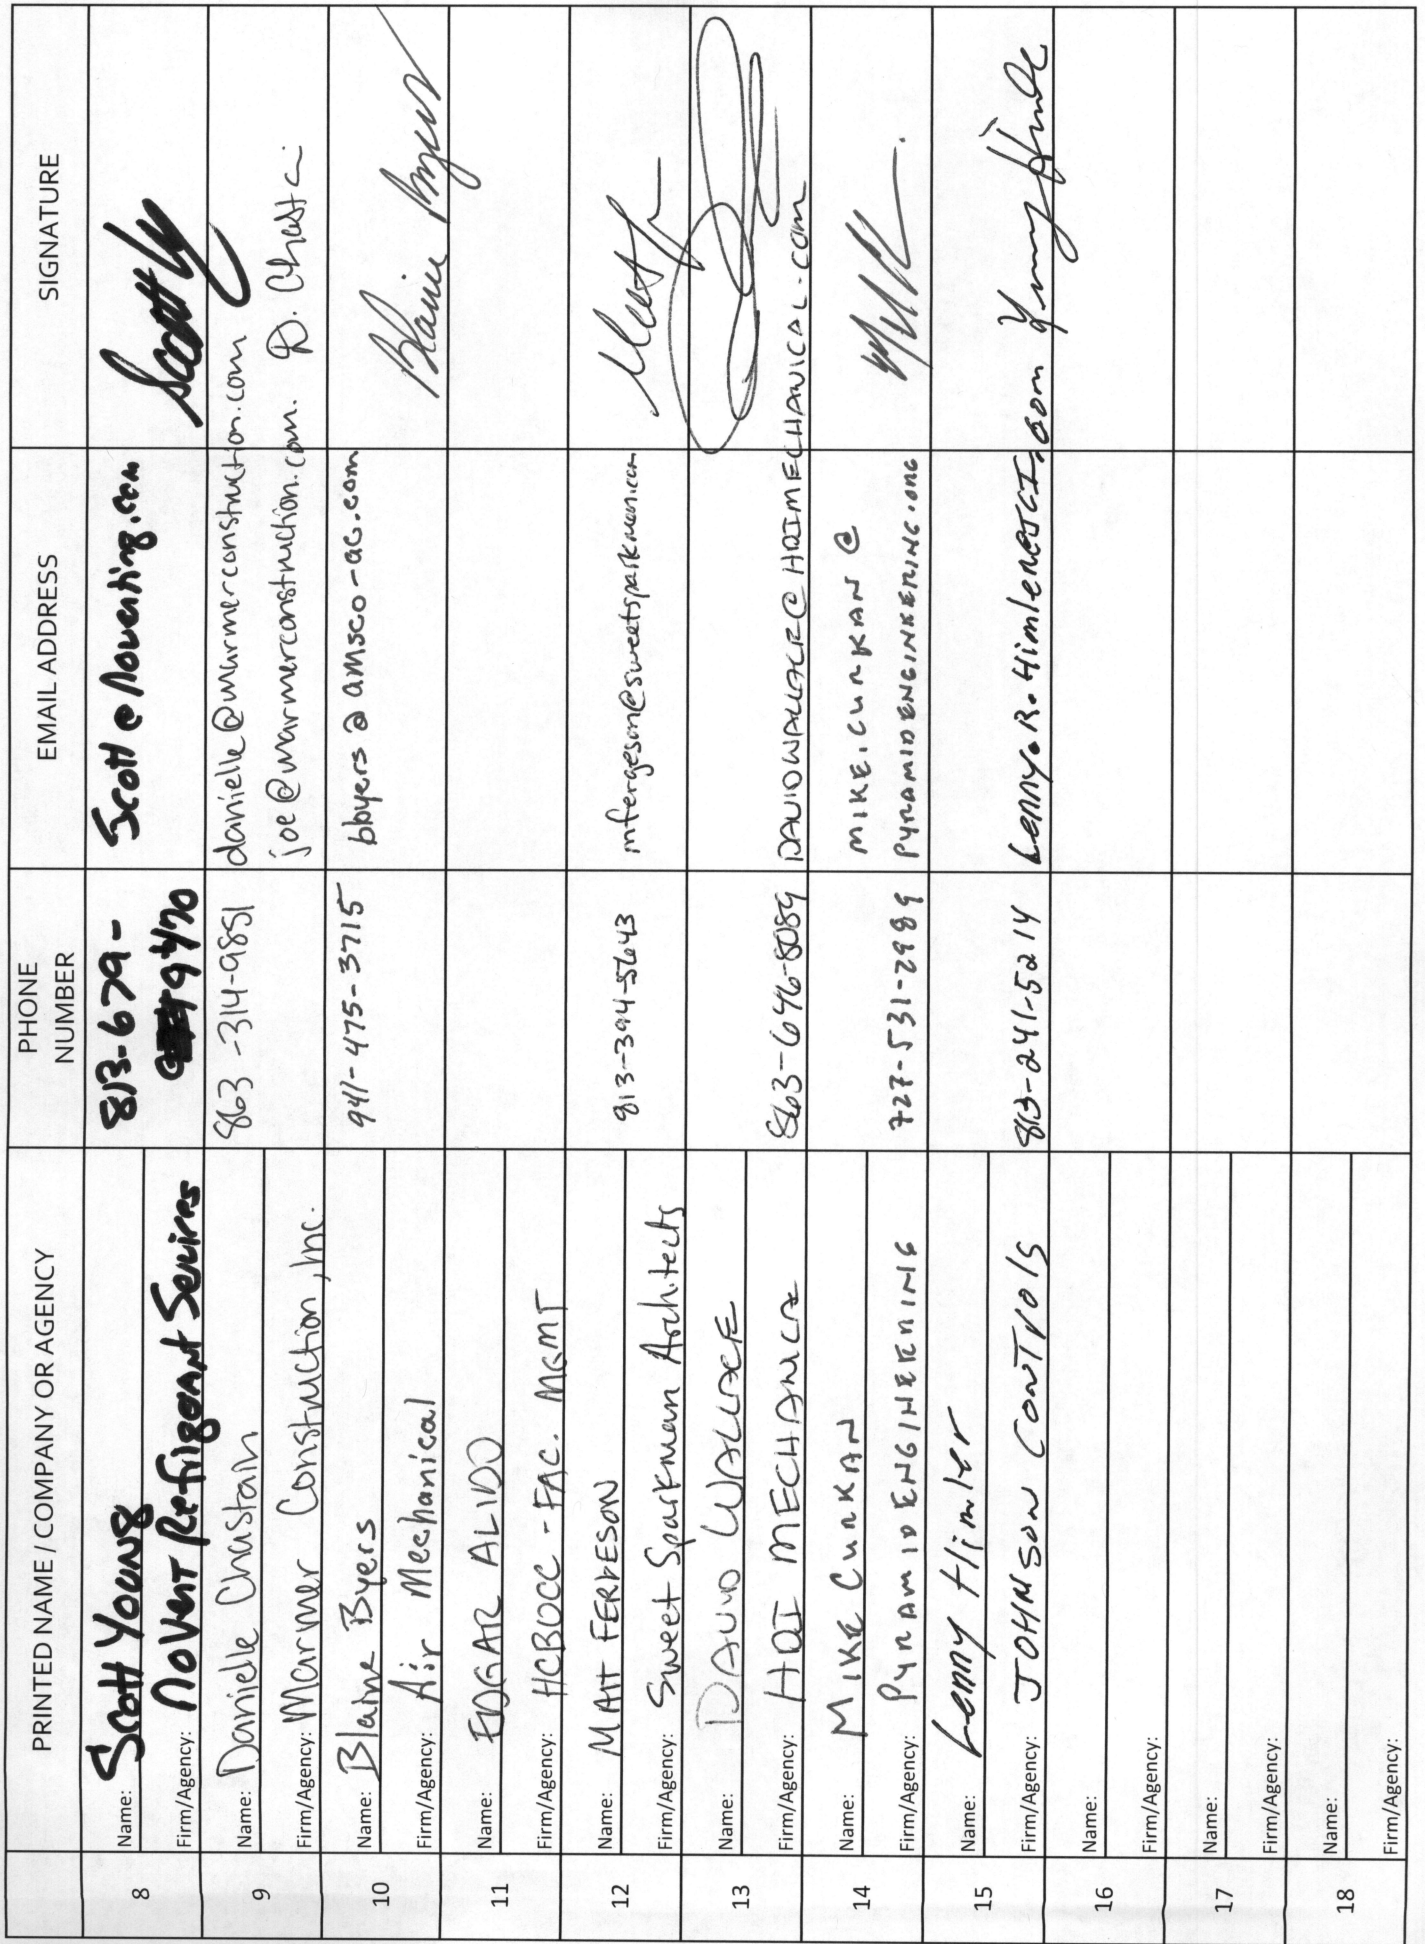 PRINTED NAME / COMPANY OR AGENCY
PHONE
NUMBER
EMAIL ADDRESS
SIGNATURE
8
Name: Scott Young
Firm/Agency: Novent Refrigerant Services
813-679-
9470
Scott@Noventing.com
9
Name: Danielle Chastain
Firm/Agency: Marmer Construction, Inc.
863-314-9851
danielle@marmerconstruction.com
joe@marmerconstruction.com.
10
Name: Blaine Byers
Firm/Agency: Air Mechanical
941-475-3715
bbyers@amsco-ac.com
Blaine Byers
11
Name: EDGAR ALIDO
Firm/Agency: HCBOCC - FAC. MGMT
12
Name: MATT FERGESON
Firm/Agency: Sweet Sparkman Architects
813-394-5643
mfergeson@sweetsparkman.com
13
Name: DAVID WALLACE
Firm/Agency: HDI MECHANICA
863-646-8089
DAVIDWALLACE@HDIMECHANICAL.COM
14
Name: MIKE CURRAN
Firm/Agency: PYRAMID ENGINEERING
727-531-2989
MIKE.CURRAN@
PYRAMIDENGINEERING.ORG
15
Name: Lenny Himler
Firm/Agency: JOHNSON CONTROLS
813-241-5214
Lenny.R.Himler@JCI.com
16
Name:
Firm/Agency:
17
Name:
Firm/Agency:
18
Name:
Firm/Agency: